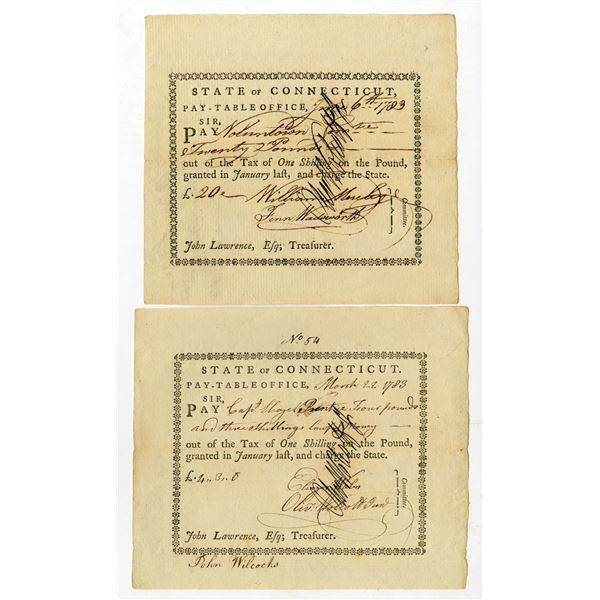 STATE OF CONNECTICUT,
PAY-TABLE OFFICE, June 6th 1783
SIR,
PAY Voluntown
Twenty Pounds
out of the Tax of One Shilling on the Pound,
granted in January last, and charge the State.
£. 20
William Moseley
Fenn Wadsworth
Committee.
John Lawrence, Esq; Treasurer.
No 54
STATE OF CONNECTICUT.
PAY-TABLE OFFICE, March 22 1783
SIR,
PAY Capt Four pounds
and three Shillings Money
out of the Tax of One Shilling on the Pound,
granted in January last, and charge the State.
£. 4 " 3 " 0
Oliv Wolcott Jun
Committee.
John Lawrence, Esq; Treasurer.
John Wilcocks